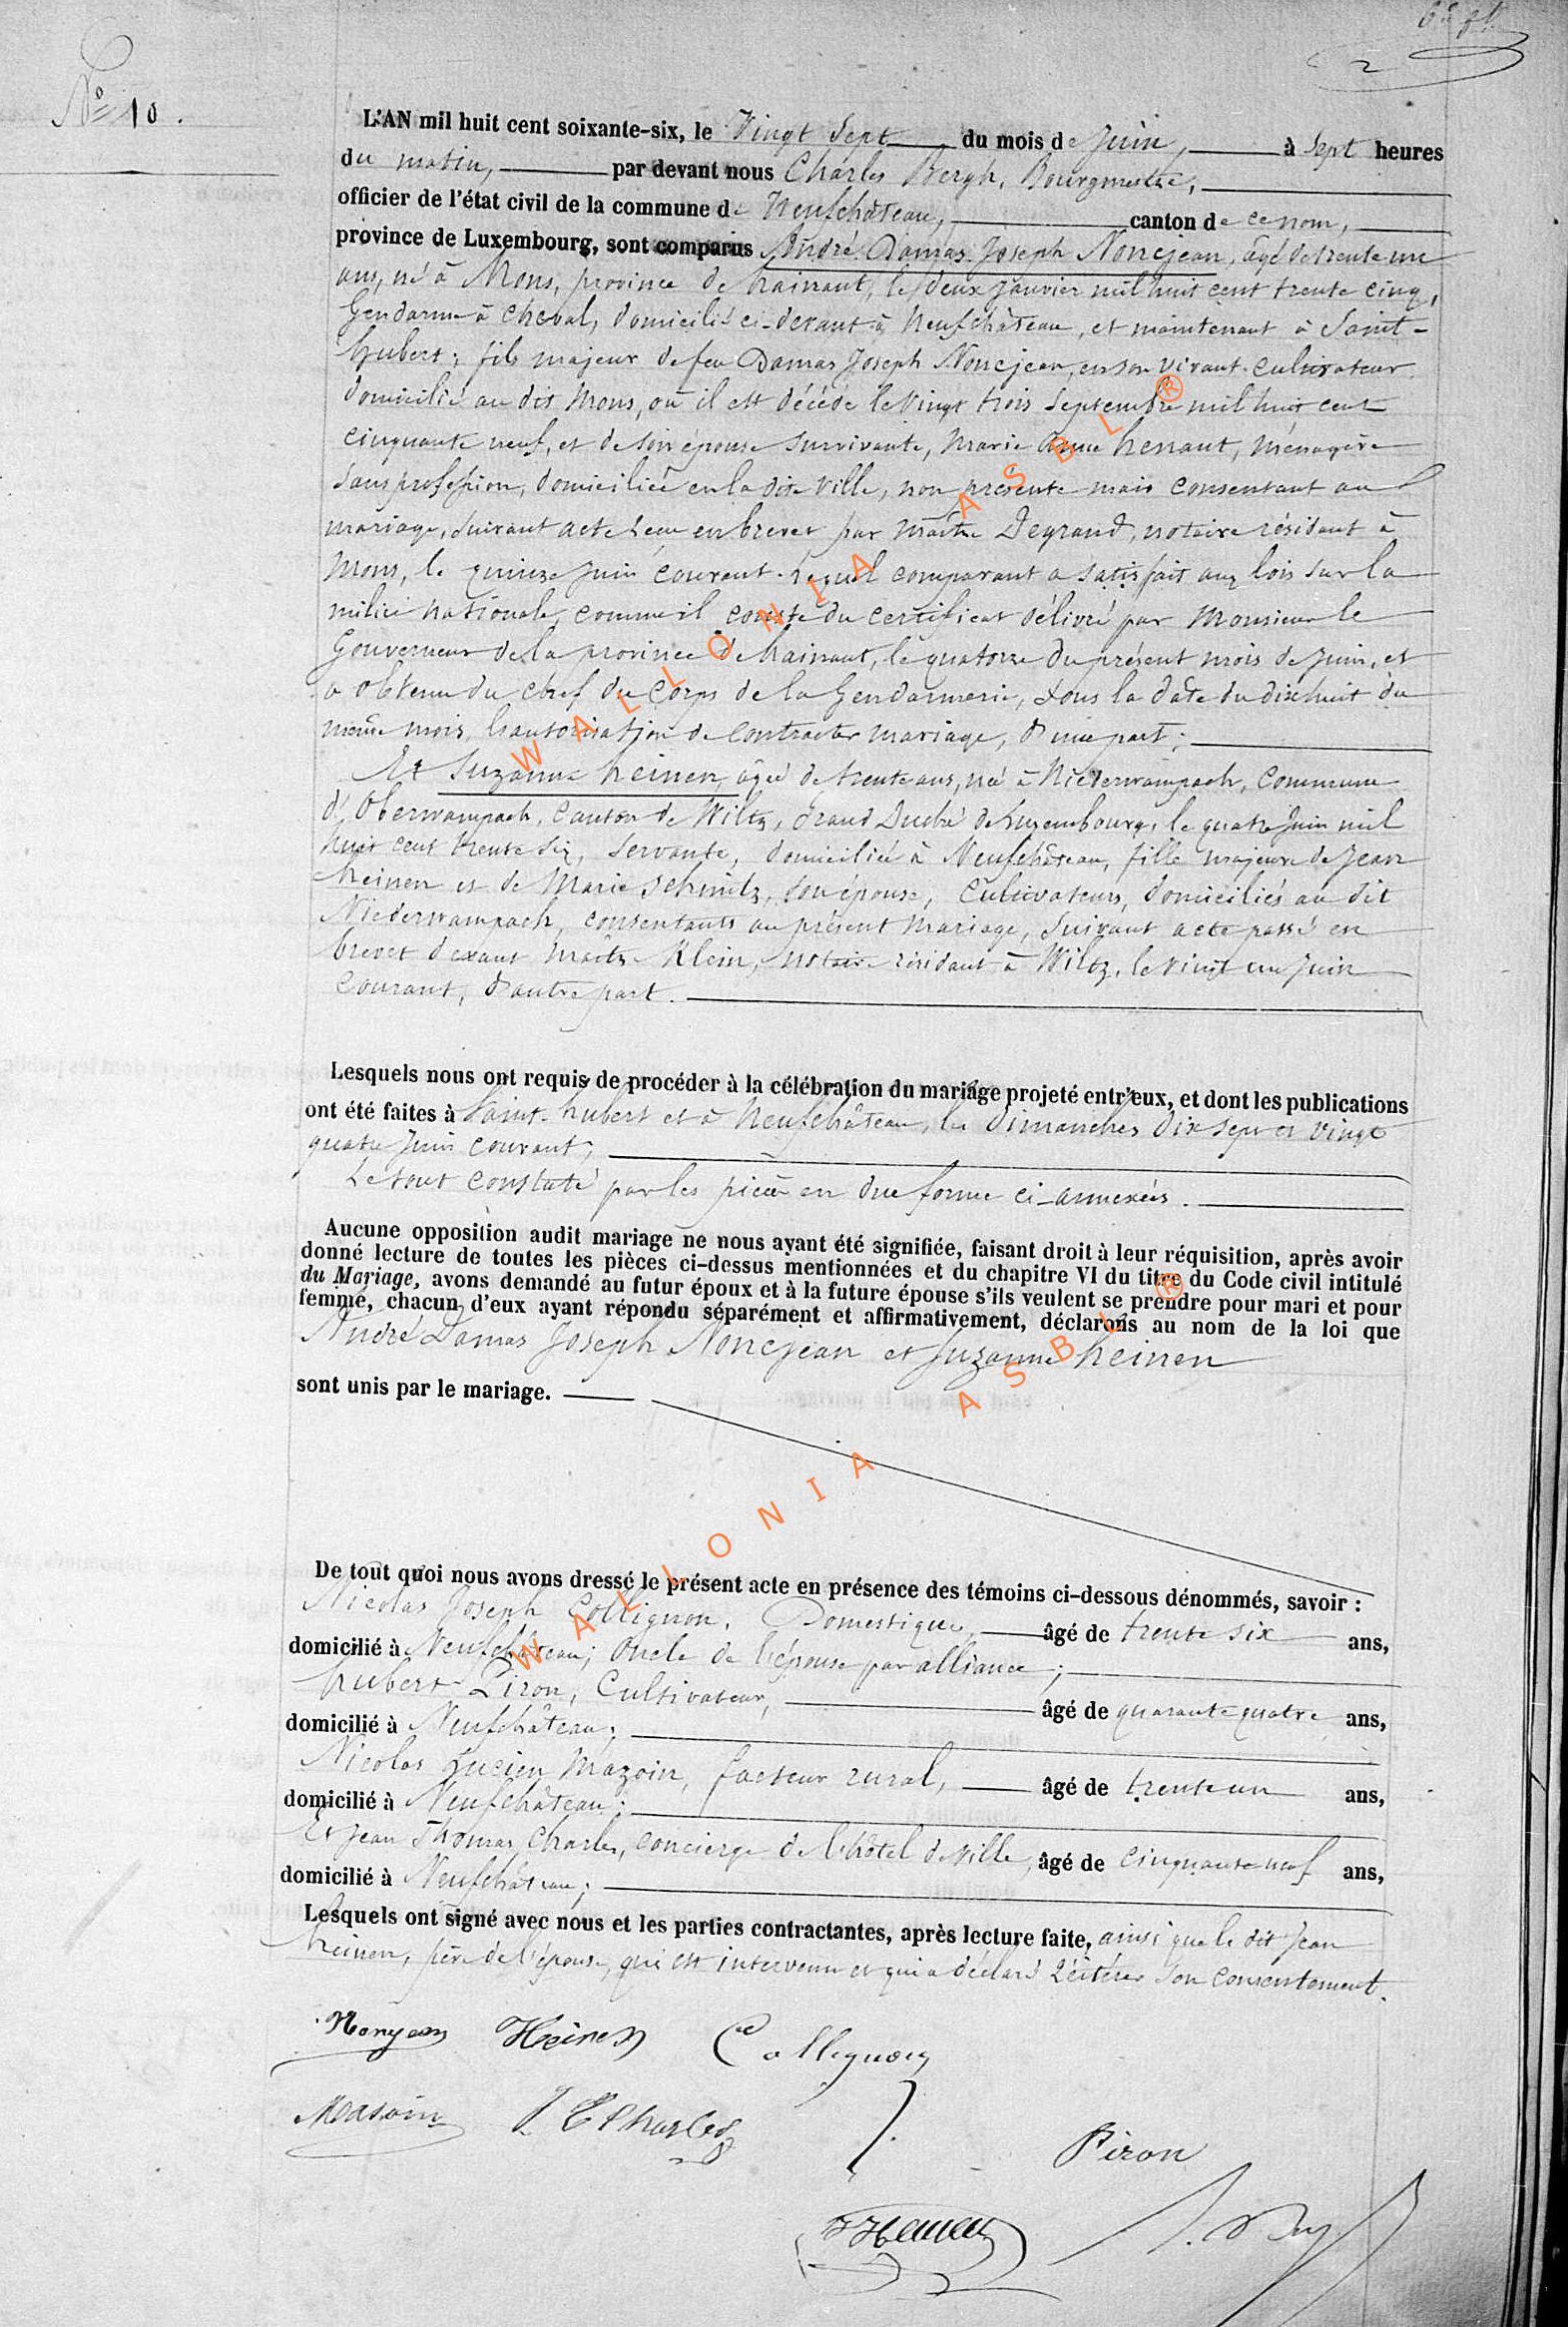 N° 10.
L'AN mil huit cent soixante-six, le Vingt Sept du mois de Juin, à Sept heures
du matin, par devant nous Charles Bergh, Bourgmestre,
officier de l'état civil de la commune de Neufchâteau, canton de ce nom,
province de Luxembourg, sont comparus André Damas Joseph Noncjean, âgé de trente un
ans, né à Mons, province de hainaut, le deux Janvier mil huit cent trente cinq,
Gendarme à Cheval, domicilié ci-devant à Neufchâteau, et maintenant à Saint-
hubert; fils majeur de feu Damas Joseph Noncjean, en son vivant Cultivateur
domicilié au dit Mons, où il est décédé le vingt trois Septembre mil huit cent
cinquante neuf, et de son épouse survivante, Marie Anne henaut, ménagère
Sans profession, domiciliée en la dite Ville, non présente mais Consentant au
mariage, suivant acte recu en brevet par maître Degrand, notaire résidant à
Mons, le quinze Juin courant. Lequel comparant a satisfait aux lois sur la
milice nationale, comme il conste du certificat délivré par Monsieur le
Gouverneur de la province de hainaut, le quatorze du présent mois de Juin, et
a obtenu du Chef du Corps de la Gendarmerie, sous la date du dix huit du
même mois, l'autorisation de Contracter mariage, d'une part;
Et Suzanne heinen, âgée de trente ans, née à Niederwampach, Commune
d'Oberwampach, Canton de Wiltz, Grand Duché de Luxembourg, le quatre Juin mil
huit cent trente six, Servante, domiciliée à Neufchâteau, fille majeure de Jean
heinen et de Marie Schmitz, son épouse, Cultivateurs, domiciliés au dit
Niederwampach, consentants au présent mariage, suivant acte passé en
brevet devant Maître Klein, notaire résidant à Wiltz, le vingt un Juin
Courant, d'autre part.
Lesquels nous ont requis de procéder à la célébration du mariage projeté entr'eux, et dont les publications
ont été faites à Saint-hubert et à Neufchâteau, les dimanches dix sept et vingt
quatre Juin courant;
Le tout constaté par les pièces en due forme ci-annexées.
Aucune opposition audit mariage ne nous ayant été signifiée, faisant droit à leur réquisition, après avoir
donné lecture de toutes les pièces ci-dessus mentionnées et du chapitre VI du titre du Code civil intitulé
du Mariage, avons demandé au futur époux et à la future épouse s'ils veulent se prendre pour mari et pour
femme, chacun d'eux ayant répondu séparément et affirmativement, déclarons au nom de la loi que
André Damas Joseph Noncjean et Suzanne heinen
sont unis par le mariage.
De tout quoi nous avons dressé le présent acte en présence des témoins ci-dessous dénommés, savoir :
Nicolas Joseph Collignon, Domestique, âgé de trente six ans,
domicilié à Neufchâteau; Oncle de l'épouse par alliance;
hubert Piron, Cultivateur, âgé de quarante quatre ans,
domicilié à Neufchâteau;
Nicolas Lucien Mazoin, facteur rural, âgé de trente un ans,
domicilié à Neufchâteau;
Et Jean Thomas Charles, concierge de l'hôtel de ville, âgé de cinquante neuf ans,
domicilié à Neufchâteau;
Lesquels ont signé avec nous et les parties contractantes, après lecture faite, ainsi que le dit Jean
heinen, père de l'épouse, qui est intervenu et qui a déclaré réitérer son consentement.
Nonjean Heinen Collignon
Masoin J T Charles
Piron
WALLONIA ASBL ®
WALLONIA ASBL ®